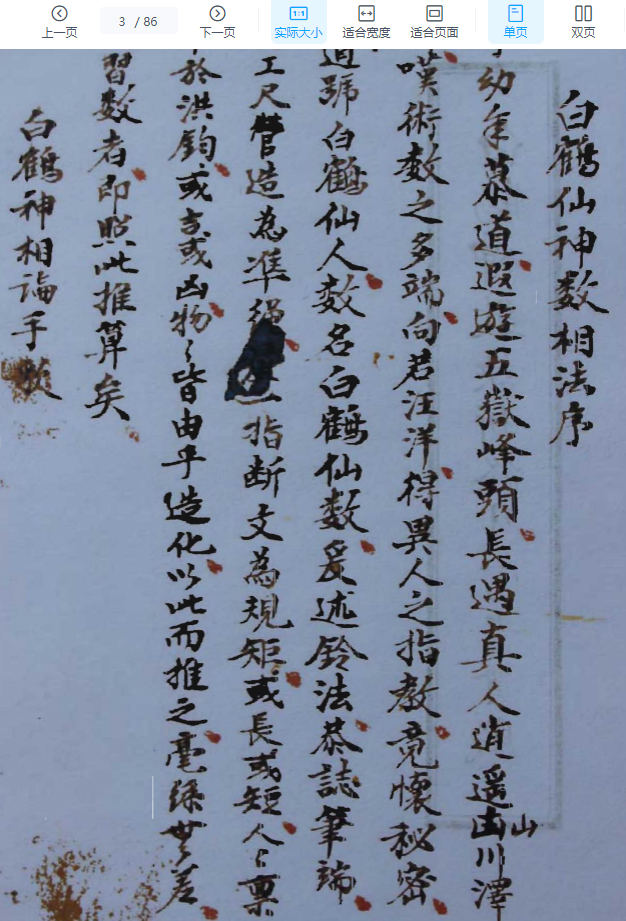 上一页
3 / 86
下一页
1:1
实际大小
适合宽度
适合页面
单页
双页
白鶴仙神数相法序
幼年慕道遐遊五獄峰頭長遇真人逍遥山川澤
嘆術数之多端向若汪洋得異人之指教竟懷秘密
道號白鶴仙人数名白鶴仙数爰述鈴法恭誌筆端
工尺營造為準繩一指断文為規矩或長或短人〻稟
於洪鈞或吉或凶物〻皆由乎造化以此而推之毫絲無差
習数者即照此推算矣
白鶴神相論手